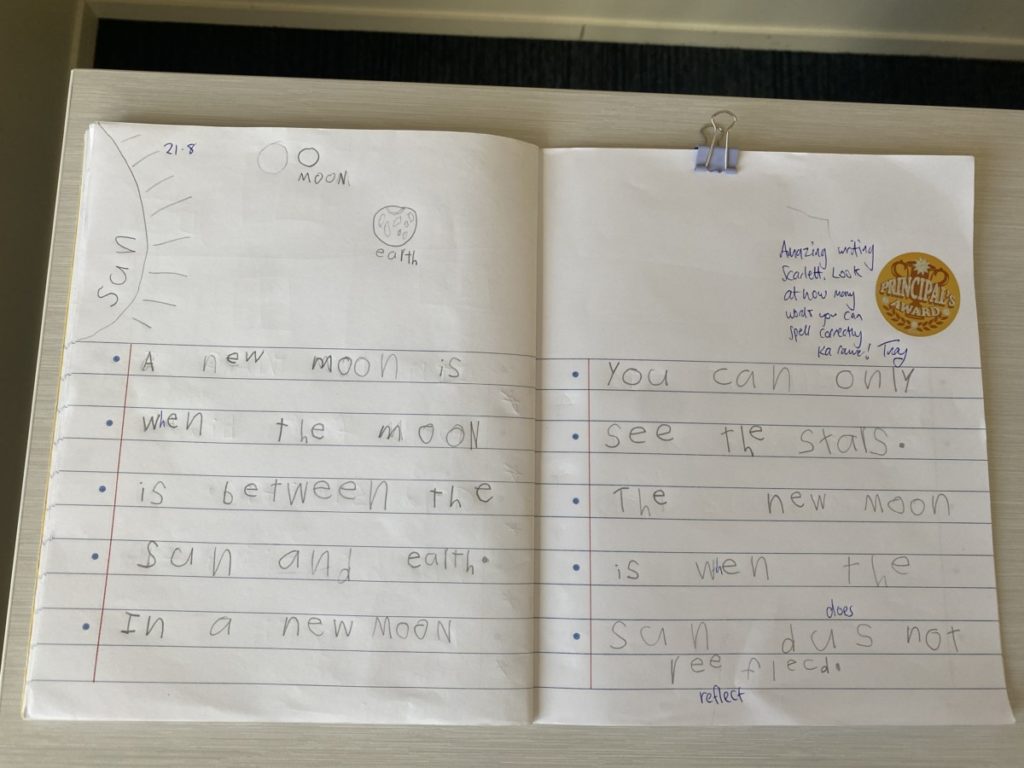 21.8
MOON
earth
Sun
A new moon is
when the mOON
is between the
Sun and earth.
In a new MOON
Amazing writing
Scarlett. Look
at how many
words you can
spell correctly
Ka rawe!
PRINCIPAL'S
AWARD
You can only
see the stars.
The new moon
is when the
does
sun dus not
reeflecd.
reflect